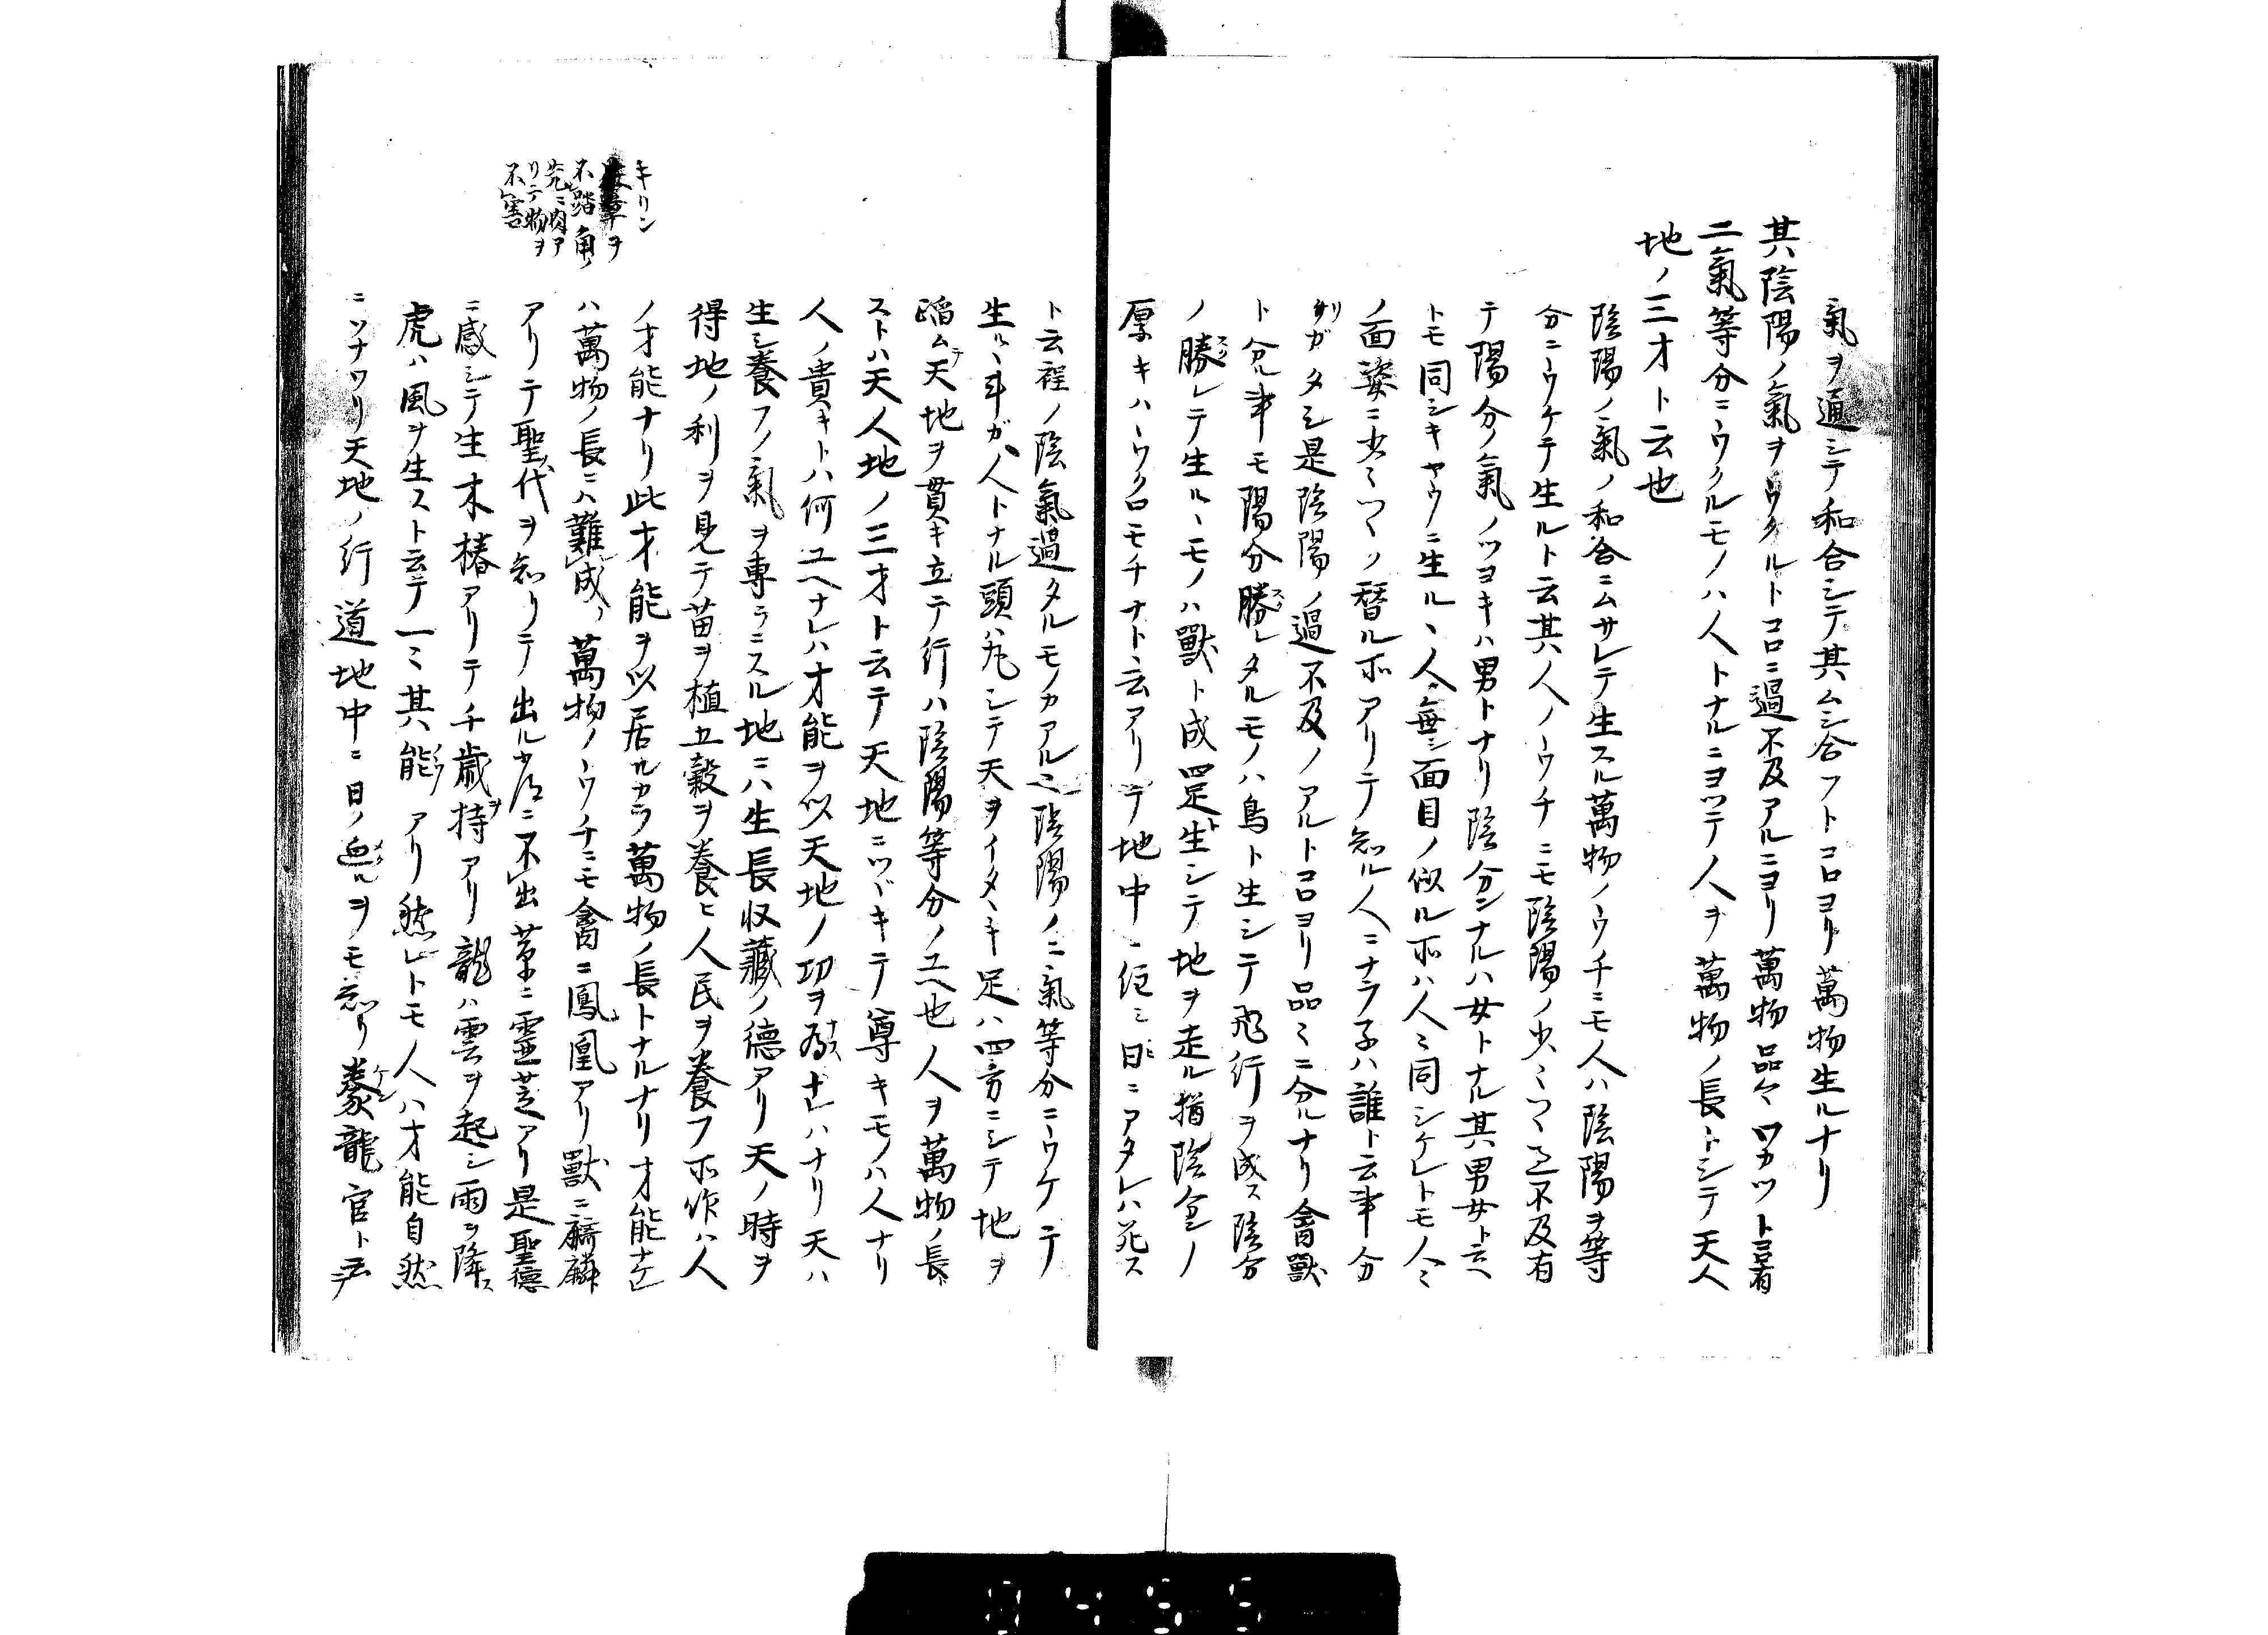 氣ヲ通シテ和合シテ其ムシ合フトコロヨリ萬物生ルナリ
其陰陽ノ氣ヲウクルトコロニ過不及アルニヨリ萬物品々ワカツト
二氣等分ニウクルモノハ人トナルニヨツテ人ヲ萬物ノ長トシテ天人
地ノ三才ト云也
陰陽ノ氣ノ和合ニムサレテ生スル萬物ノウチニモ人ハ陰陽ヲ等
分ニウケテ生ルト云其人ノウチニモ陰陽ノ少〻ツヽ過不及有
テ陽分ノ氣ノツヨキハ男トナリ陰分ンナルハ女トナル其男女ト云ヘ
トモ同シキヤウニ生ルヽ人毎ニ面目ノ似ル所ハ人〻同シケレトモ人〻
ノ面姿ニ少〻ツヽノ替ル所アリテ知ル人ニナラ子ハ誰ト云事分
リガタシ是陰陽ノ過不及ノアルトコロヨリ品〻ニ分ルナリ禽獸
ト分ル事モ陽分勝レタルモノハ鳥ト生シテ飛行ヲ成ス陰分
ノ勝レテ生ルヽモノハ獸ト成四足ト生シテ地ヲ走ル猶陰分ノ
厚キハウクロモチナト云アリテ地中ニ住ミ日ニアタレハ死ス
ト云程ノ陰氣過タルモノカアル也陰陽ノ二氣等分ニウケテ
生ルヽ斗ガ人トナル頭ハ丸シテ天ヲイタヽキ足ハ四方ニシテ地ヲ
蹈ム天地ヲ貫キ立テ行ハ陰陽等分ノユヘ也人ヲ萬物ノ長
ストハ天人地ノ三才ト云テ天地ニツヾキテ尊キモノハ人ナリ
人ノ貴キトハ何ユヘナレハ才能ヲ以天地ノ功ヲ為ナレハナリ天ハ
生シ養フノ氣ヲ専ラニスル地ニハ生長収藏ノ德アリ天ノ時ヲ
得地ノ利ヲ見テ苗ヲ植五穀ヲ養ヒ人民ヲ養フ所作ハ人
ノ才能ナリ此才能ヲ以居ルカラ萬物ノ長トナルナリ才能ナケレ
ハ萬物ノ長ニハ難成萬物ノウチニモ禽ニ鳳凰アリ獸ニ麒麟
アリテ聖代ヲ知リテ出ル常ニ不出草ニ靈芝アリ是聖德
ニ感シテ生木椿アリテ千歳ヲ持アリ龍ハ雲ヲ起シ雨ヲ降ス
虎ハ風ヲ生スト云テ一〻其能アリ然レトモ人ハ才能自然
ニソナワリ天地ノ行道地中ニ日ノ廻ルヲモ知リ豢龍官ト云
キリン
ヲ
不踏角ノ
先ニ肉ア
リテ物ヲ
不害